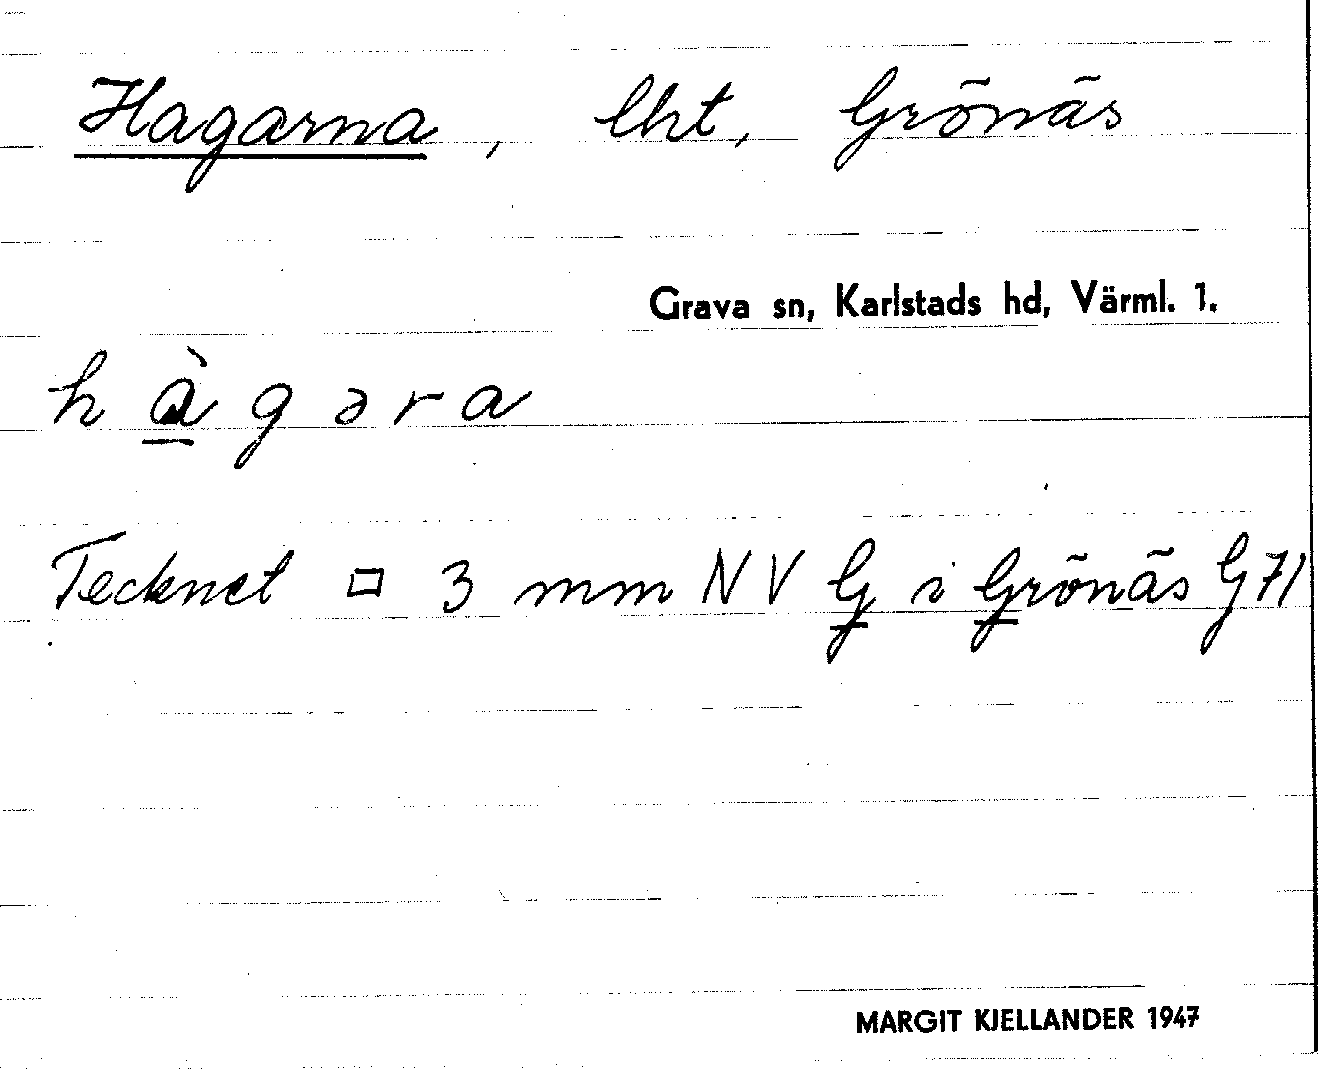 Hagarna, lht, Grönäs
Grava sn, Karlstads hd, Värml. 1.
h à g ə r a
Tecknet □ 3 mm NV G i Grönäs G 71
MARGIT KJELLANDER 1947